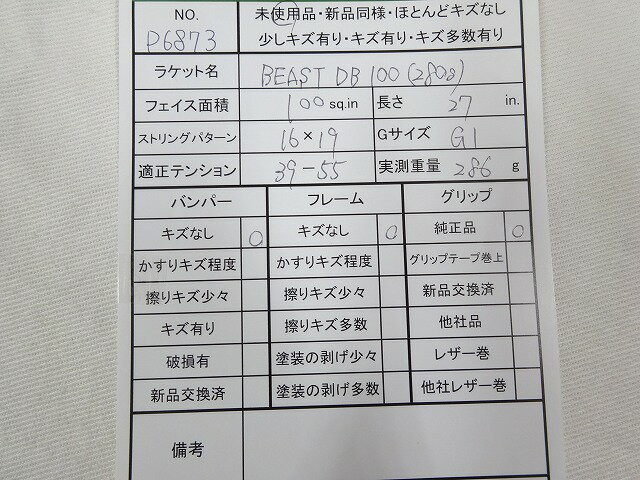 NO. 未使用品・新品同様・ほとんどキズなし
P6873 少しキズ有り・キズ有り・キズ多数有り
ラケット名 BEAST DB 100 (280g)
フェイス面積 100 sq.in 長さ 27 in.
ストリングパターン 16×19 Gサイズ G1
適正テンション 39-55 実測重量 286 g
バンパー フレーム グリップ
キズなし ○ キズなし ○ 純正品 ○
かすりキズ程度 かすりキズ程度 グリップテープ巻上
擦りキズ少々 擦りキズ少々 新品交換済
キズ有り 擦りキズ多数 他社品
破損有 塗装の剥げ少々 レザー巻
新品交換済 塗装の剥げ多数 他社レザー巻
備考